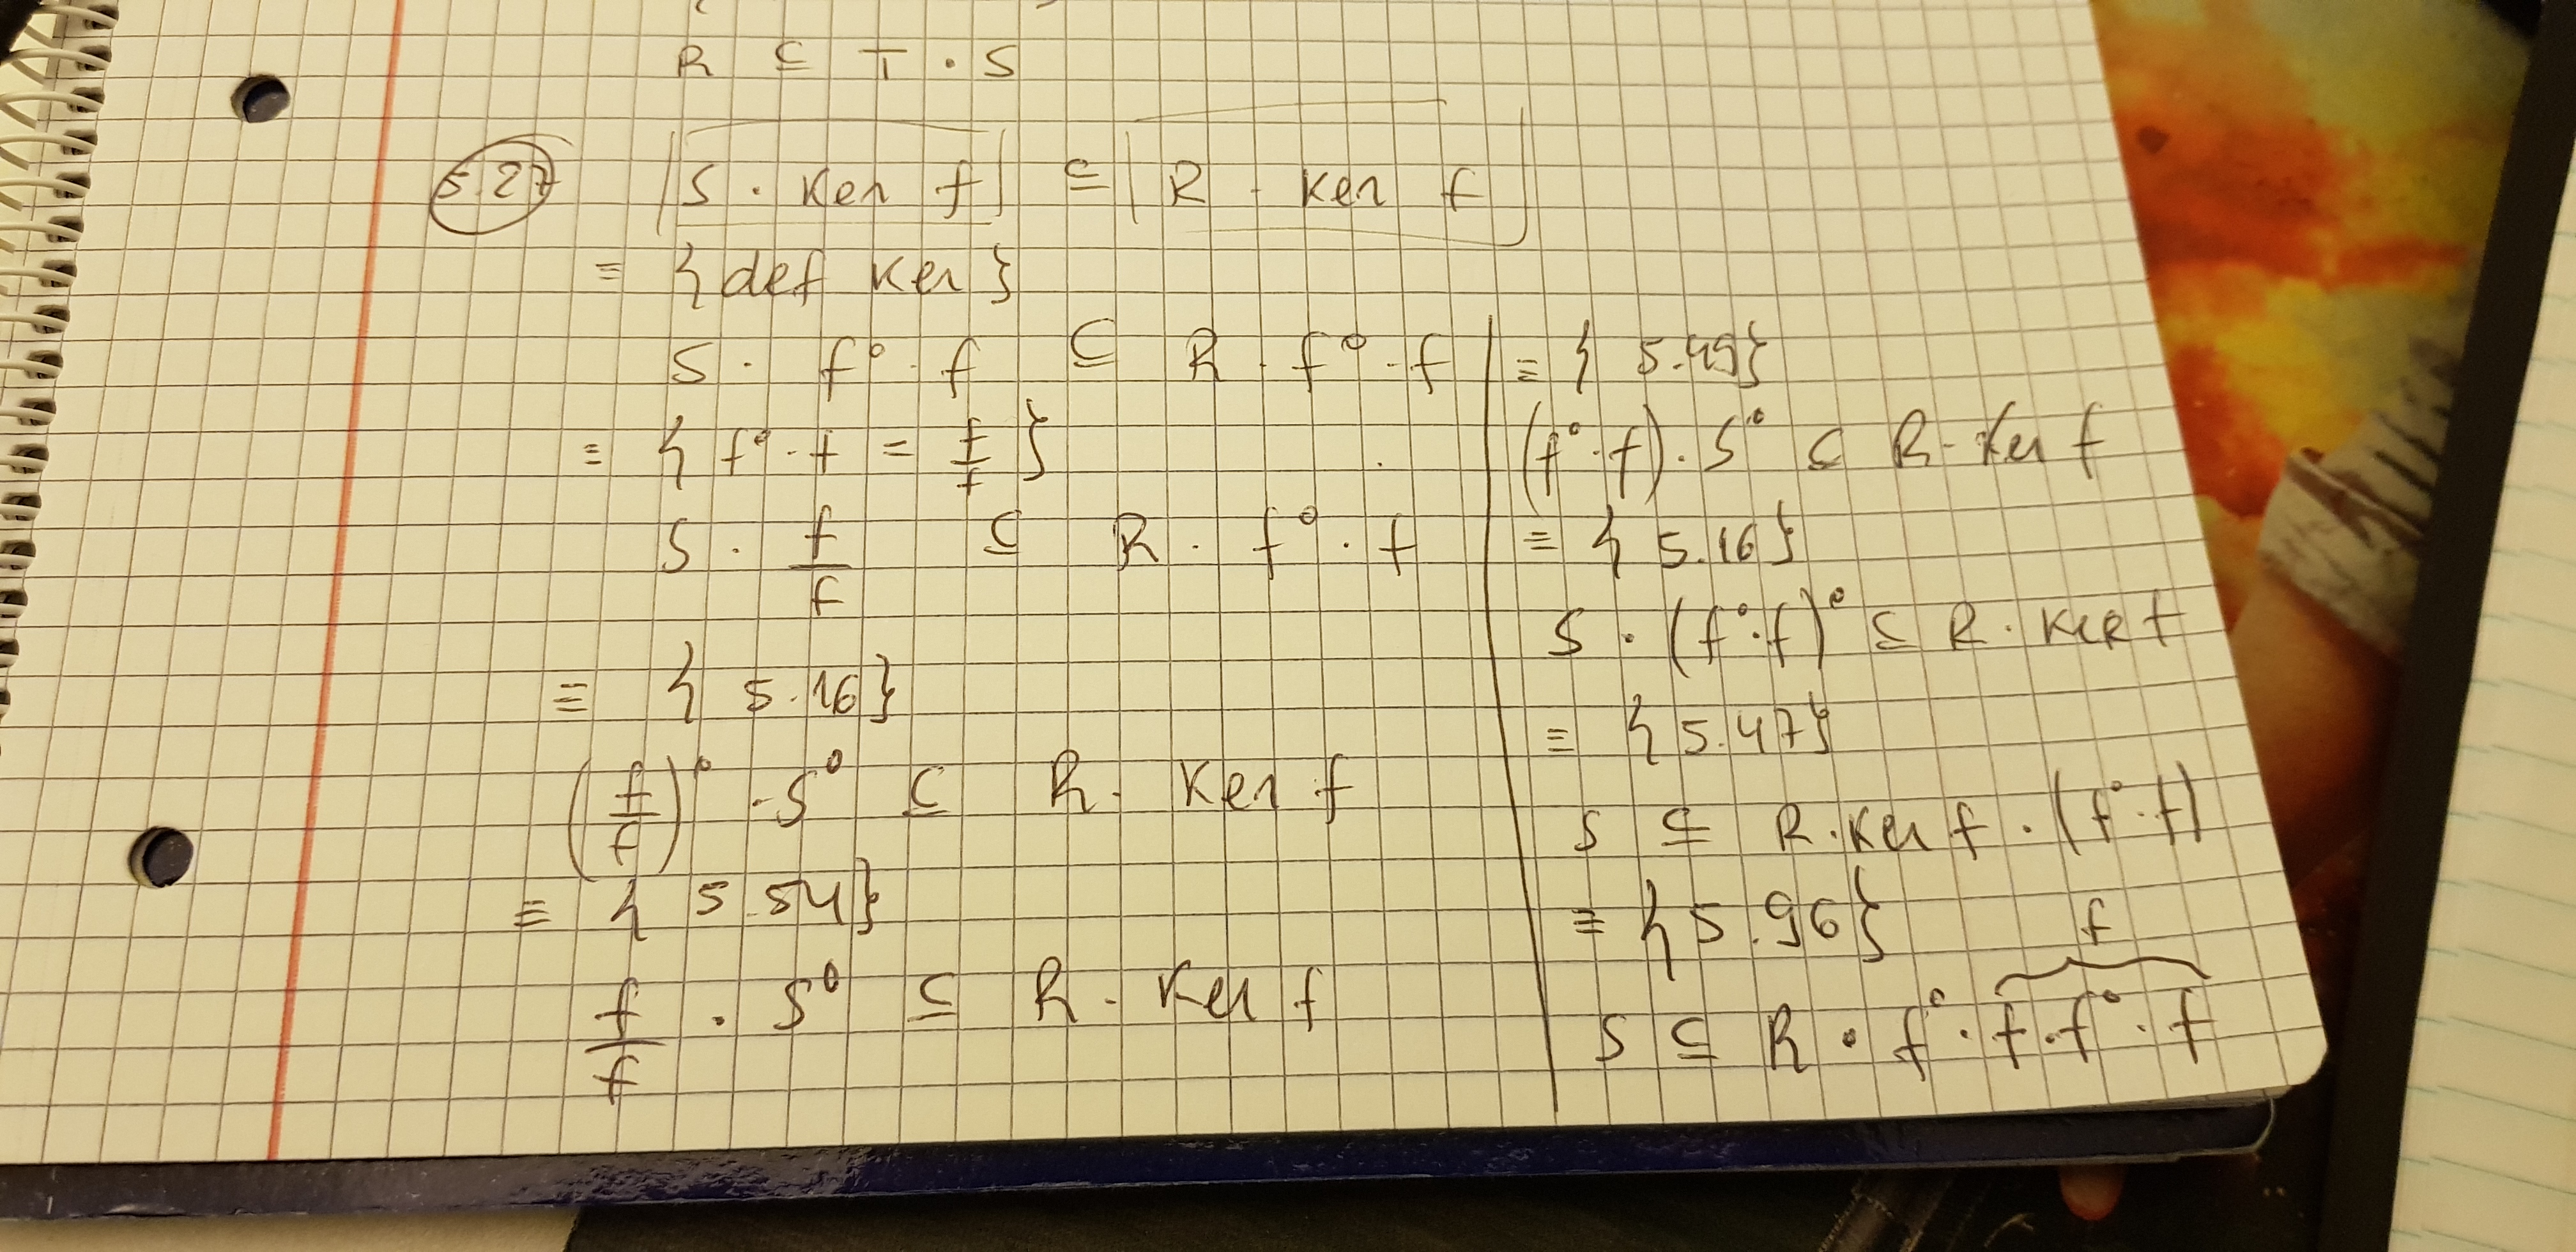 R ⊆ T · S
5.27 S · Ker f ⊆ R · Ker f
≡ {def Ker}
S · f° · f ⊆ R · f° · f
≡ {f° · f = f/f}
S · f/f ⊆ R · f° · f
≡ {5.16}
(f/f)° · S° ⊆ R · Ker f
≡ {5.54}
f/f · S° ⊆ R · Ker f
≡ {5.49}
(f° · f) · S° ⊆ R · Ker f
≡ {5.16}
S · (f° · f)° ⊆ R · Ker f
≡ {5.47}
S ⊆ R · Ker f · (f° · f)
≡ {5.96}
f
S ⊆ R · f° · f · f° · f